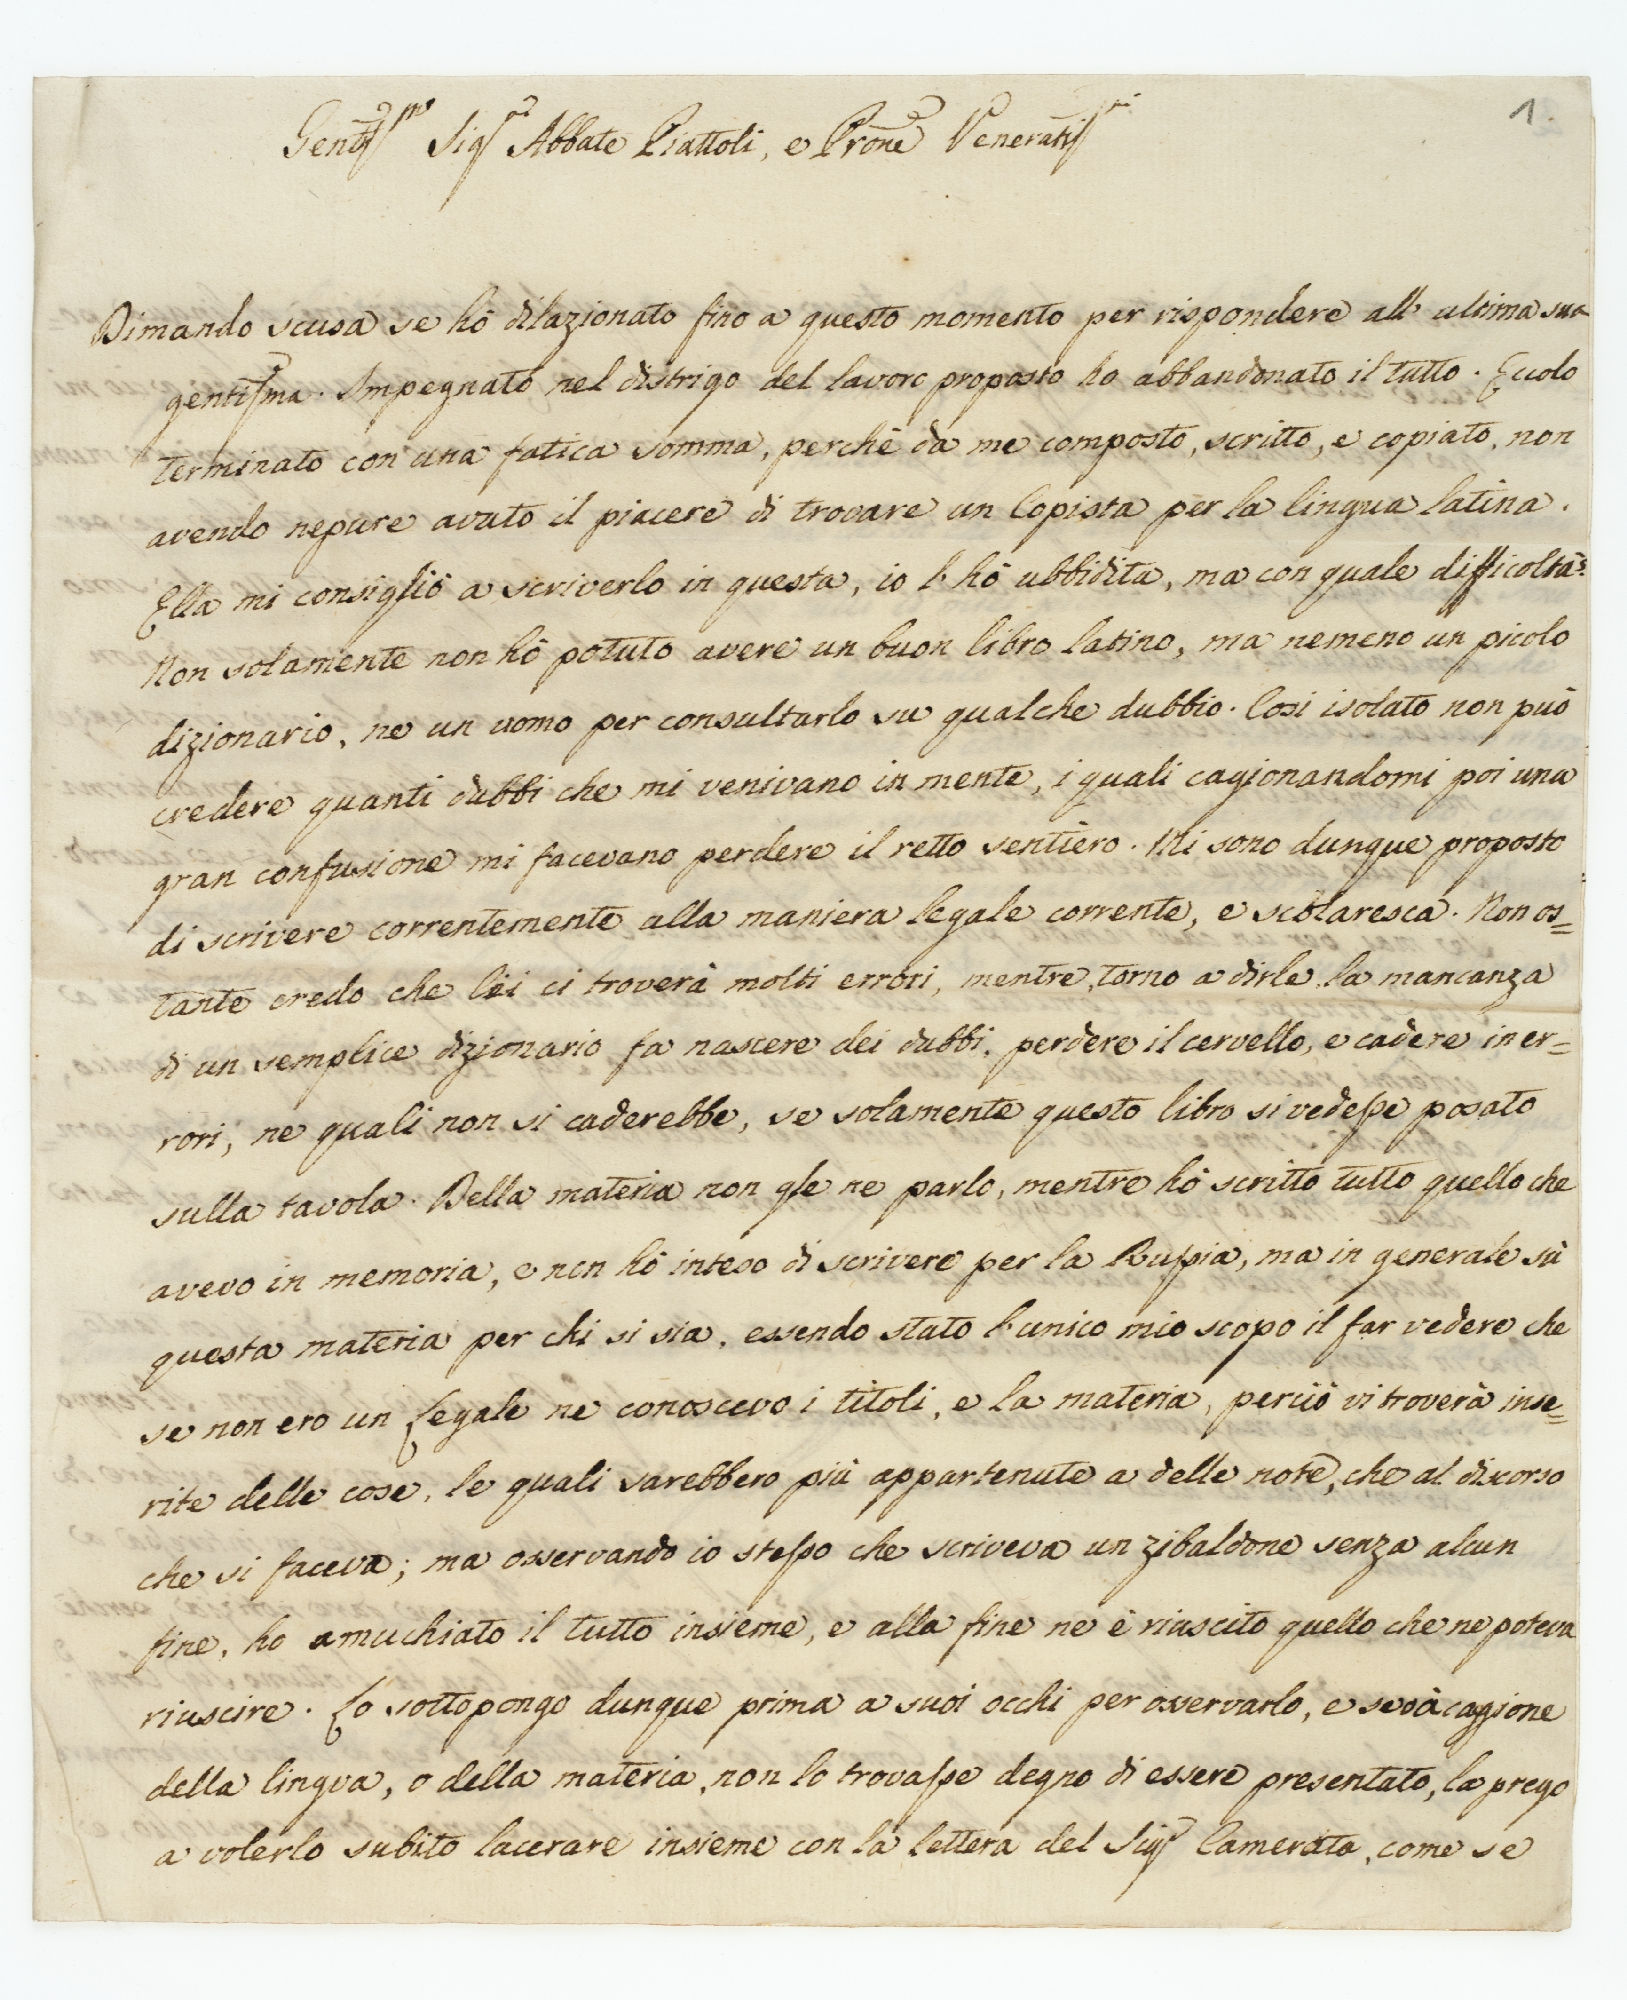 1.
Gentmo Sigr Abbate Piattoli, e Prone Veneratmo
Dimando scusa se hò dilazionato fino a questo momento per rispondere all' ultima sua
gentissma. Impegnato nel distrigo del lavoro proposto ho abbandonato il tutto. Eccolo
terminato con una fatica somma, perchè da me composto, scritto, e copiato, non
avendo nepure avuto il piacere di trovare un Copista per la lingua latina.
Ella mi consigliò a scriverlo in questa, io l' hò ubbidita, ma con quale difficoltà?
Non solamente non hò potuto avere un buon libro latino, ma nemeno un picolo
dizionario, ne un uomo per consultarlo su qualche dubbio. Cosi isolato non può
credere quanti dubbi che mi venivano in mente, i quali cagionandomi poi una
gran confusione mi facevano perdere il retto sentiero. Mi sono dunque proposto
di scrivere correntemente alla maniera legale corrente, e scolaresca. Non os=
tante credo che lei ci troverà molti errori, mentre, torno a dirle, la mancanza
di un semplice dizionario fa nascere dei dubbi, perdere il cervello, e cadere in er=
rori, ne quali non si caderebbe, se solamente questo libro si vedesse posato
sulla tavola. Della materia non gle ne parlo, mentre hò scritto tutto quello che
avevo in memoria, e non hò inteso di scrivere per la Russia, ma in generale sù
questa materia per chi si sia, essendo stato l' unico mio scopo il far vedere che
se non ero un Legale ne conoscevo i titoli, e la materia, perciò vi troverà inse=
rite delle cose, le quali sarebbero più appartenute a delle note, che al discorso
che si faceva; ma osservando io stesso che scriveva un zibaldone senza alcun
fine, ho amuchiato il tutto insieme, e alla fine ne è riuscito quello che ne poteva
riuscire. Lo sottopongo dunque prima a suoi occhi per osservarlo, e se o à cagione
della lingua, o della materia, non lo trovasse degno di essere presentato, la prego
a volerlo subito lacerare insieme con la lettera del Sigr Camerata, come se